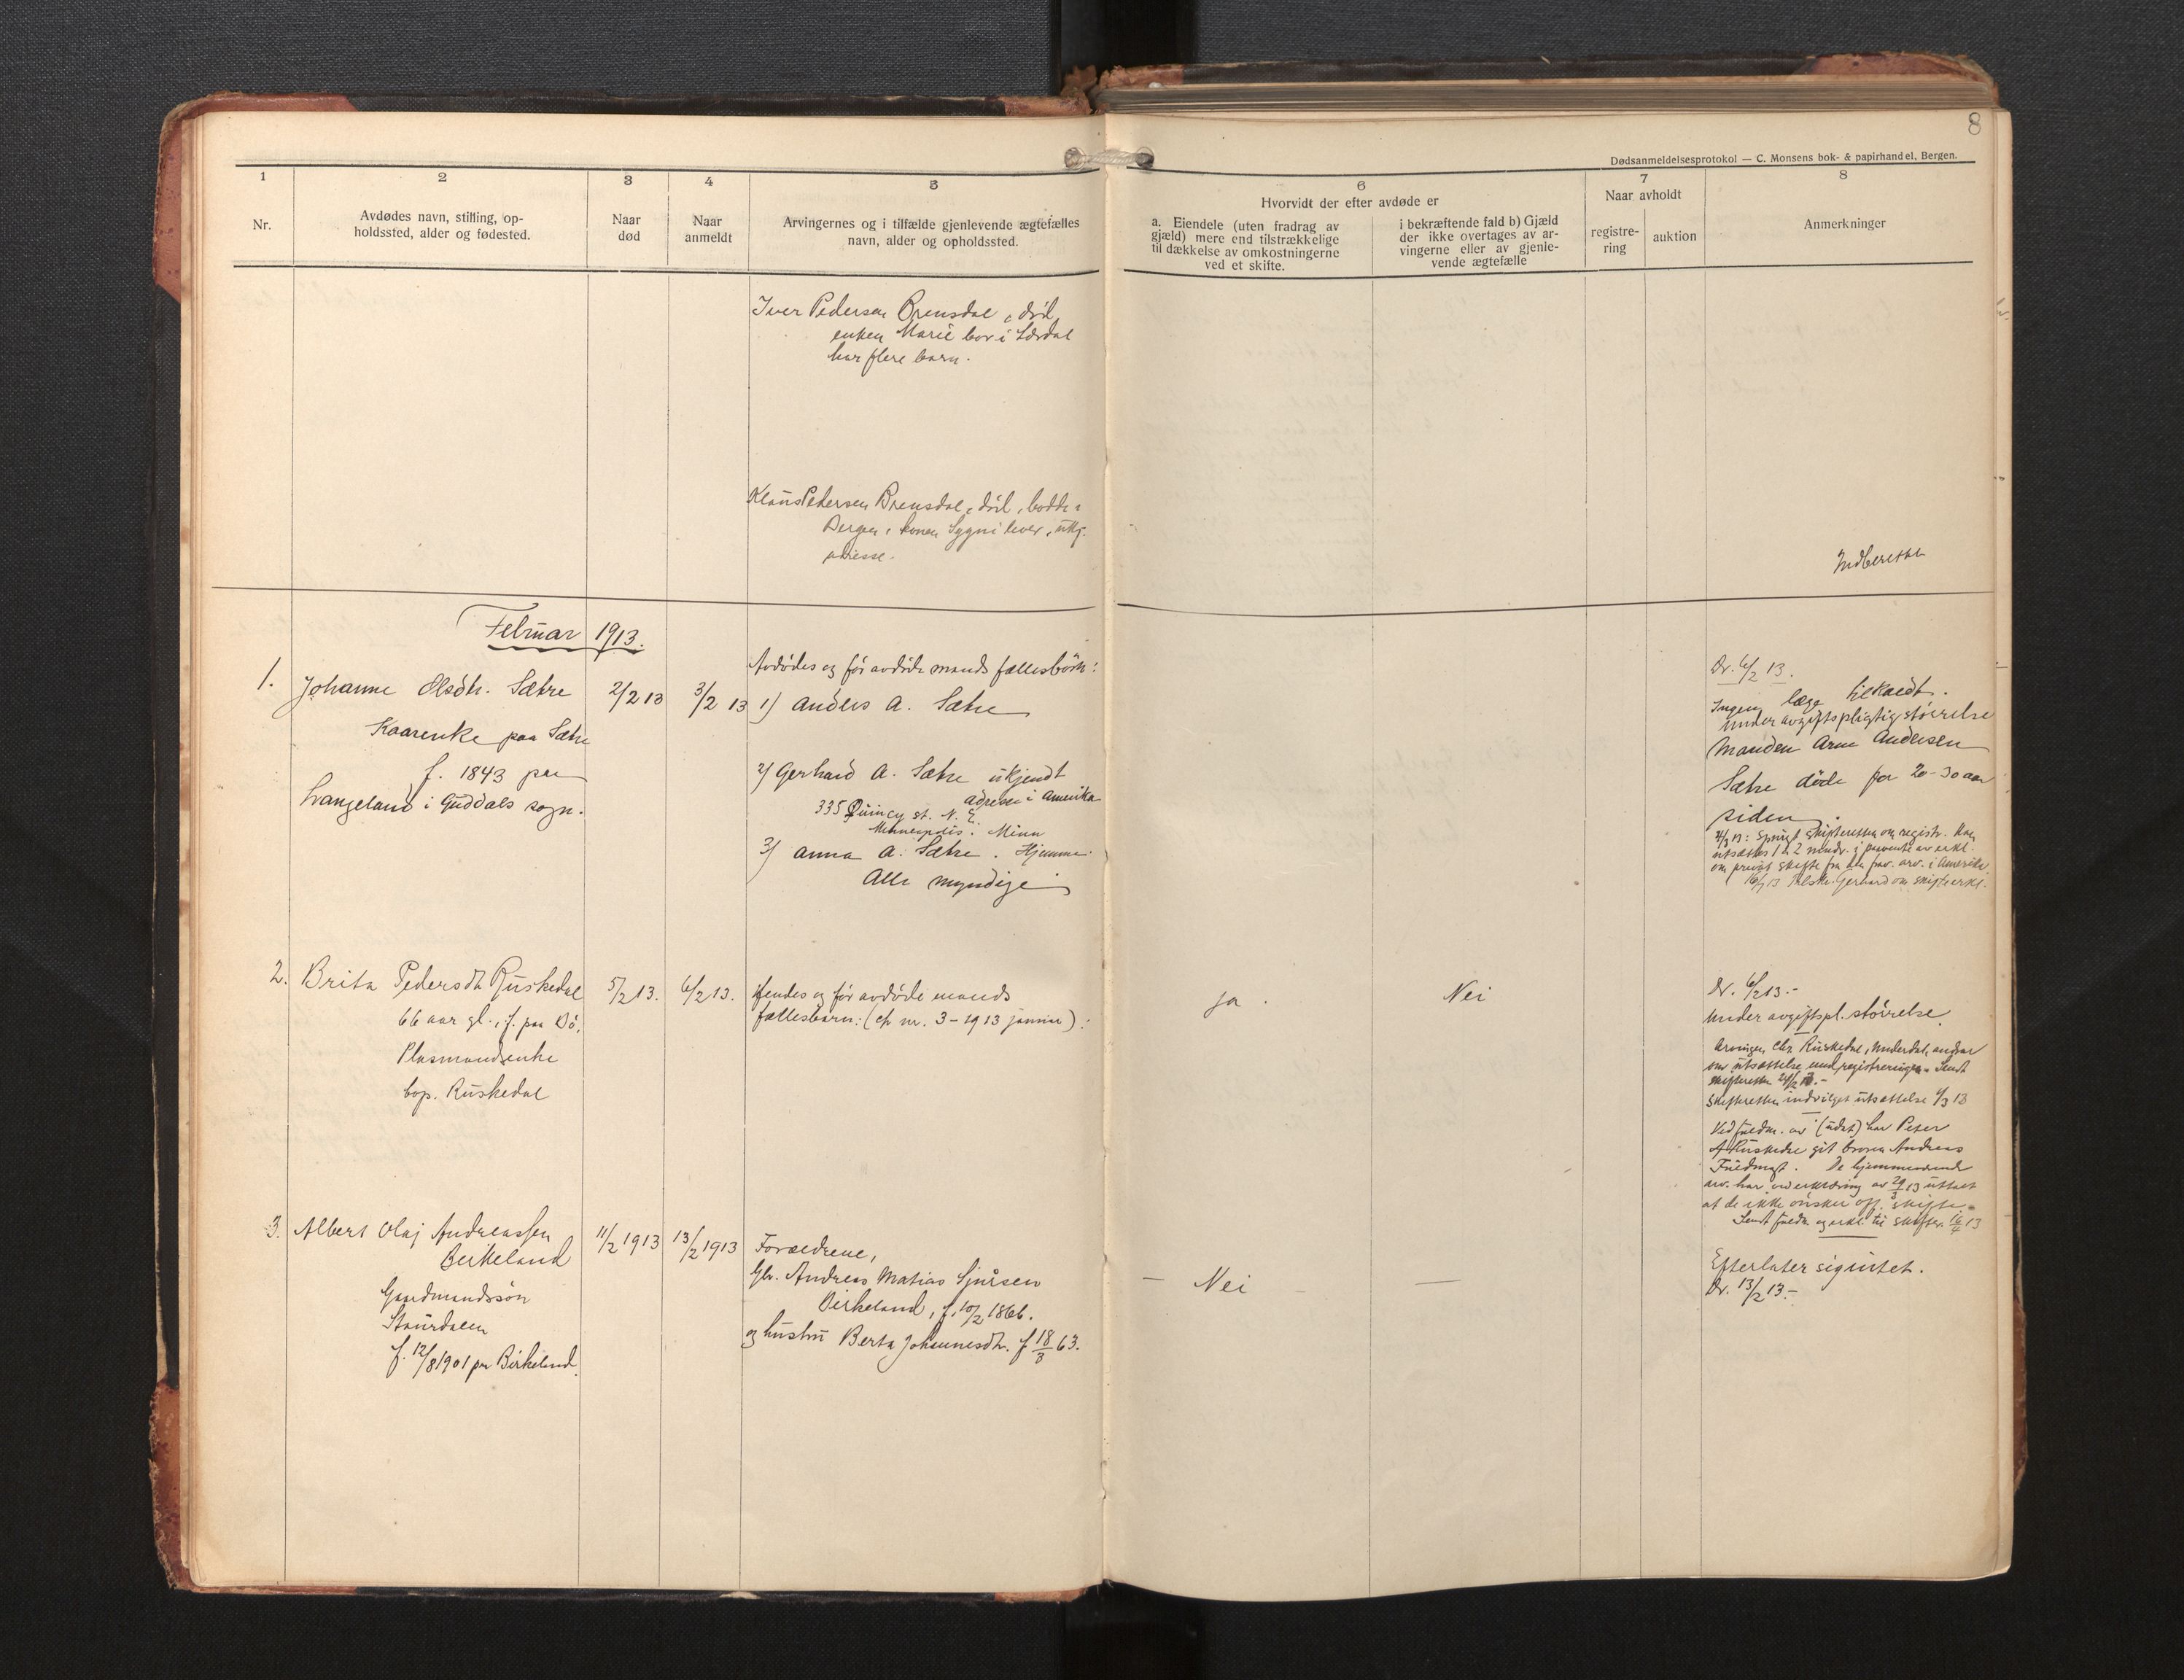 8
Dødsanmeldelsesprotokol — C. Monsens bok- & papirhandel, Bergen.
1
2
3
4
5
6
7
8
Nr.
Avdødes navn, stilling, op-
holdssted, alder og fødested.
Naar
død
Naar
anmeldt
Arvingernes og i tilfælde gjenlevende ægtefælles
navn, alder og opholdssted.
Hvorvidt der efter avdøde er
a. Eiendele (uten fradrag av
gjæld) mere end tilstrækkelige
til dækkelse av omkostningerne
ved et skifte.
i bekræftende fald b) Gjæld
der ikke overtages av ar-
vingerne eller av gjenle-
vende ægtefælle
Naar avholdt
registre-
ring
auktion
Anmerkninger
Iver Pedersen Brensdal, död,
enken Marie bor i Lærdal
har flere barn.
Klaus Pedersen Brensdal, död, bodde i
Bergen, konen Sygni lever, ukj.
adresse.
Indberettet
Februar 1913.
1.
Johanne Olsdtr. Sætre
Kaarenke paa Sætre
f. 1843 paa
Langeland i Guddals sogn.
2/2 13
3/2 13
Avdödes og för avdöde mands fællesbörn:
1) Anders A. Sætre
2) Gerhard A. Sætre ukjendt
adresse i Amerika
335 Quincy st. N. E.
Minneapolis. Minn
3) Anna A. Sætre. Hjemme.
Alle myndige
Dr. 4/2 13.
Ingen læge tilkaldt.
Under avgiftspligtig störrelse
Manden Arne Andersen
Sætre döde for 20-30 aar
siden.
skifteretten om registr. Kan
utsættes 1 à 2 mndr. i paavente av erkl.
om privat skifte fra den frav. arv. i Amerika.
Gerhard om skifteerkl.
2.
Brita Pedersdtr Ruskedal
66 aar gl., f. paa Bö.
Plasmandsenke
bop. Ruskedal
5/2 13.
6/2 13.
Hendes og för avdöde mands
fællesbarn: (cfr nr. 3 - 1913 januar):
ja.
Nei
Dr. 6/2 13.-
Under avgiftspl. störrelse.
Arvingen Chr. Ruskedal, Underdal, andrar
om utsættelse med registreringen. Sendt
skifteretten
Skifteretten indvilget utsættelse 4/3 13
Ved fuldm. av (udat) har Peter
A. Ruskedal git broren Andreas
Fuldmagt. De hjemmeværende
arv. har ved erklæring av 29/3 13 uttalt
at de ikke önsker off. skifte.
Sendt fuldm. og erkl. til skifter. 16/4 13
3.
Albert Olaj Andreassen
Birkeland
Gaardmandssön
Staurdalen
f. 12/8 1901 paa Birkeland.
11/2 1913
13/2 1913
Forældrene,
Gbr. Andreas Matias Sjursen
Birkeland, f. 10/2 1866.
og hustru Berta Johannesdtr. f 18/8 63.
— Nei —
—
Efterlater sig intet.
Dr. 13/2 13.-